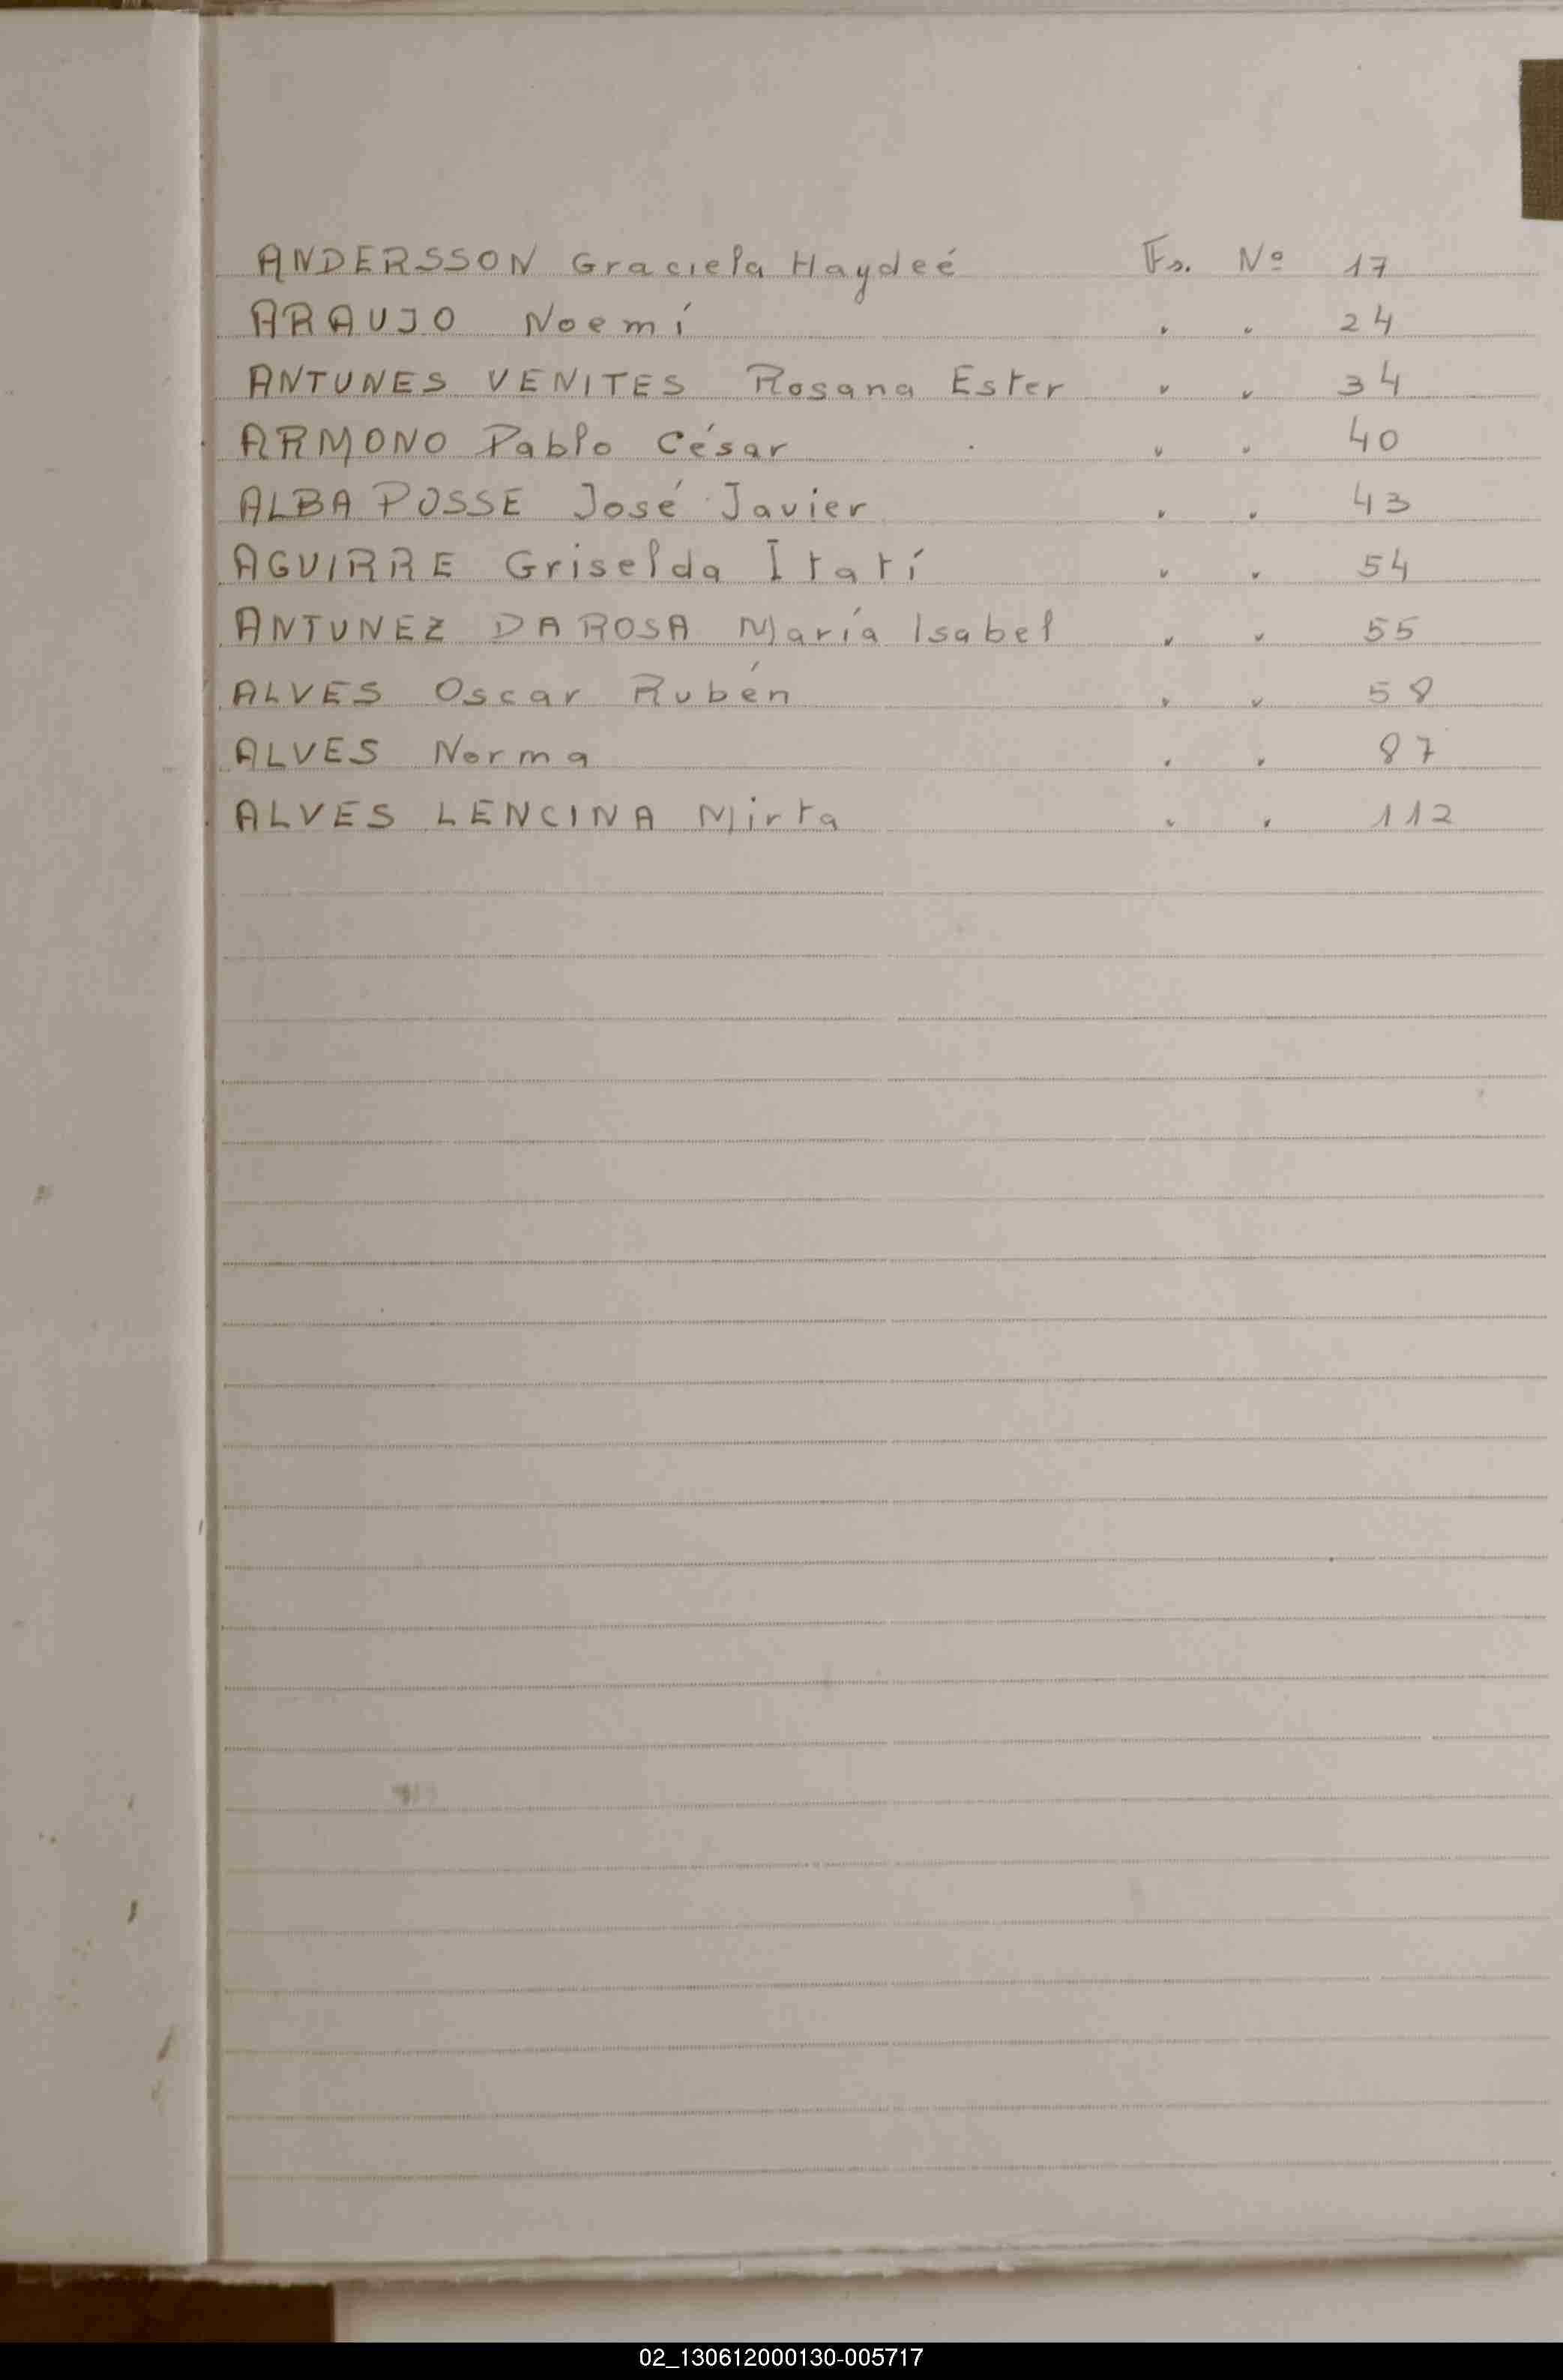 ANDERSSON Graciela Haydeé Fs. Nº 17
ARAUJO Noemí " " 24
ANTUNES VENITES Rosana Ester " " 34
ARMONO Pablo César " " 40
ALBA POSSE José Javier " " 43
AGUIRRE Griselda Itatí " " 54
ANTUNEZ DA ROSA María Isabel " " 55
ALVES Oscar Rubén " " 58
ALVES Norma " " 87
ALVES LENCINA Mirta " " 112
02_130612000130-005717